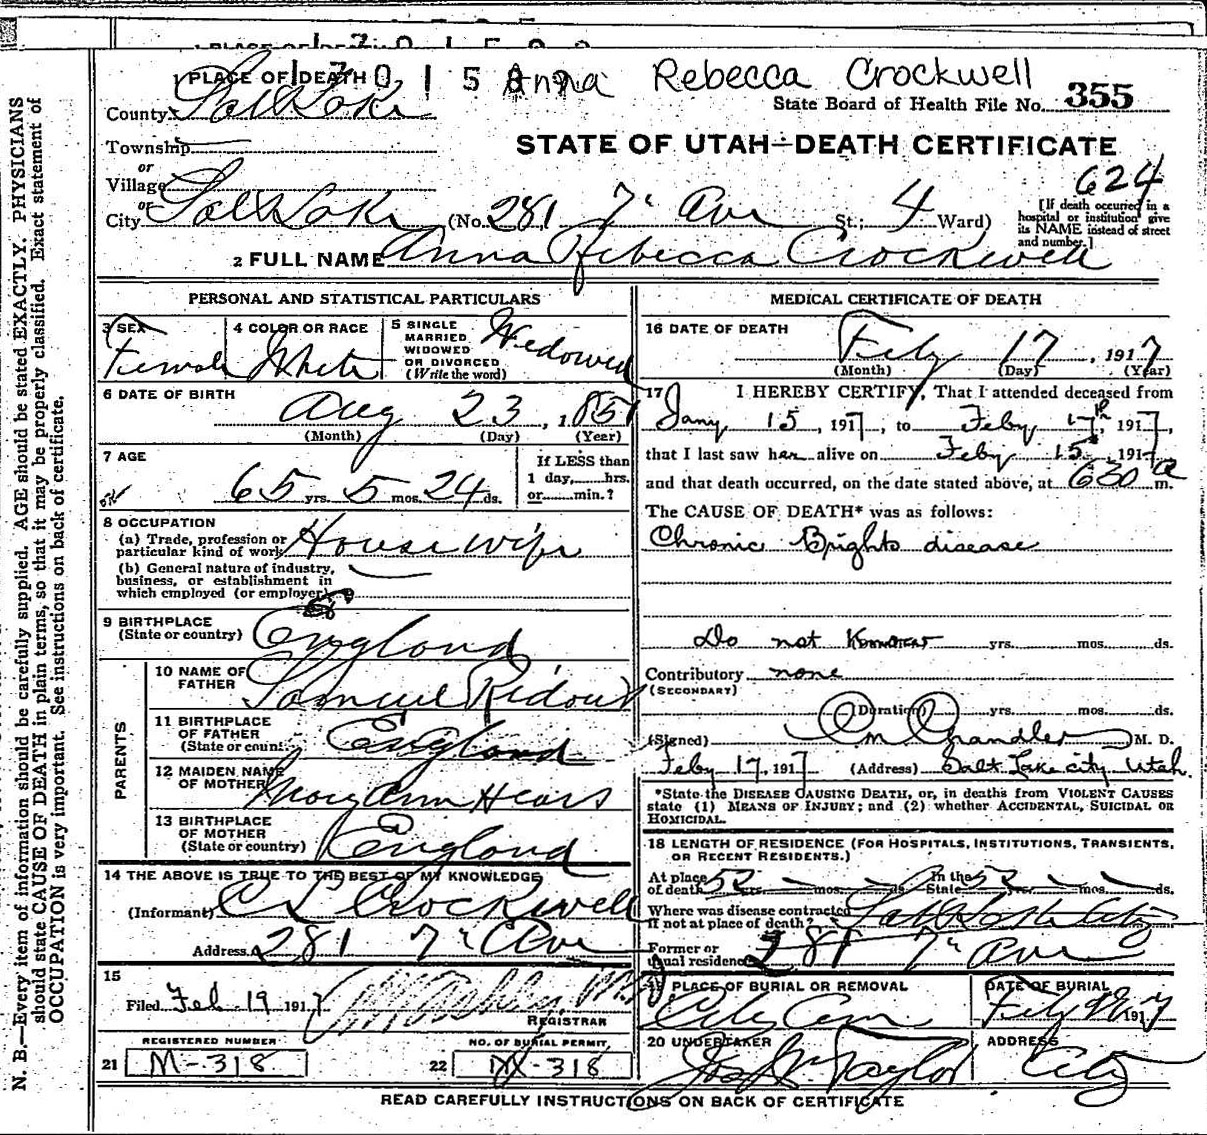 PLACE OF DEATH
Anna Rebecca Crockwell
County Salt Lake
State Board of Health File No. 355
Township
STATE OF UTAH—DEATH CERTIFICATE
or
Village
624
or
City Salt Lake (No. 281 7" Ave St.; 4 Ward)
[If death occurred in a hospital or institution give its NAME instead of street and number.]
2 FULL NAME Anna Rebecca Crockwell
PERSONAL AND STATISTICAL PARTICULARS
3 SEX Female
4 COLOR OR RACE White
5 SINGLE MARRIED WIDOWED OR DIVORCED (Write the word) Widowed
6 DATE OF BIRTH Aug 23, 1851
(Month) (Day) (Year)
7 AGE 65 yrs. 5 mos. 24 ds.
If LESS than 1 day,......hrs. or......min.?
8 OCCUPATION
(a) Trade, profession or particular kind of work Housewife
(b) General nature of industry, business, or establishment in which employed (or employer)
9 BIRTHPLACE (State or country) England
PARENTS
10 NAME OF FATHER Samuel Ridout
11 BIRTHPLACE OF FATHER (State or country) England
12 MAIDEN NAME OF MOTHER Mary Ann
13 BIRTHPLACE OF MOTHER (State or country) England
14 THE ABOVE IS TRUE TO THE BEST OF MY KNOWLEDGE
(Informant) Crockwell
Address 281 7" Ave
15
Filed Feb 19 1917
REGISTRAR
REGISTERED NUMBER
21 M-318
NO. OF BURIAL PERMIT
22 -318
MEDICAL CERTIFICATE OF DEATH
16 DATE OF DEATH
Feby 17, 1917
(Month) (Day) (Year)
17 I HEREBY CERTIFY, That I attended deceased from
Jany 15, 1917, to Feby 17th, 1917,
that I last saw her alive on Feby 15, 1917
and that death occurred, on the date stated above, at 630 a m.
The CAUSE OF DEATH* was as follows:
Chronic Brights disease
Do not Know yrs. mos. ds.
Contributory none
(SECONDARY)
(Duration) yrs. mos. ds.
(Signed) Chandler M. D.
Feby 17, 1917 (Address) Salt Lake City Utah.
*State the DISEASE CAUSING DEATH, or, in deaths from VIOLENT CAUSES
state (1) MEANS OF INJURY; and (2) whether ACCIDENTAL, SUICIDAL OR
HOMICIDAL.
18 LENGTH OF RESIDENCE (FOR HOSPITALS, INSTITUTIONS, TRANSIENTS,
OR RECENT RESIDENTS.)
At place of death 52 yrs. — mos. — ds. In the State 52 — mos. — ds.
Where was disease contracted if not at place of death? Salt Lake City
Former or usual residence 281 7" Ave
PLACE OF BURIAL OR REMOVAL City Cem
DATE OF BURIAL Feby 1917
20 UNDERTAKER Jos Wm Taylor
ADDRESS City
READ CAREFULLY INSTRUCTIONS ON BACK OF CERTIFICATE
N. B.—Every item of information should be carefully supplied. AGE should be stated EXACTLY. PHYSICIANS
should state CAUSE OF DEATH in plain terms, so that it may be properly classified. Exact statement of
OCCUPATION is very important. See instructions on back of certificate.